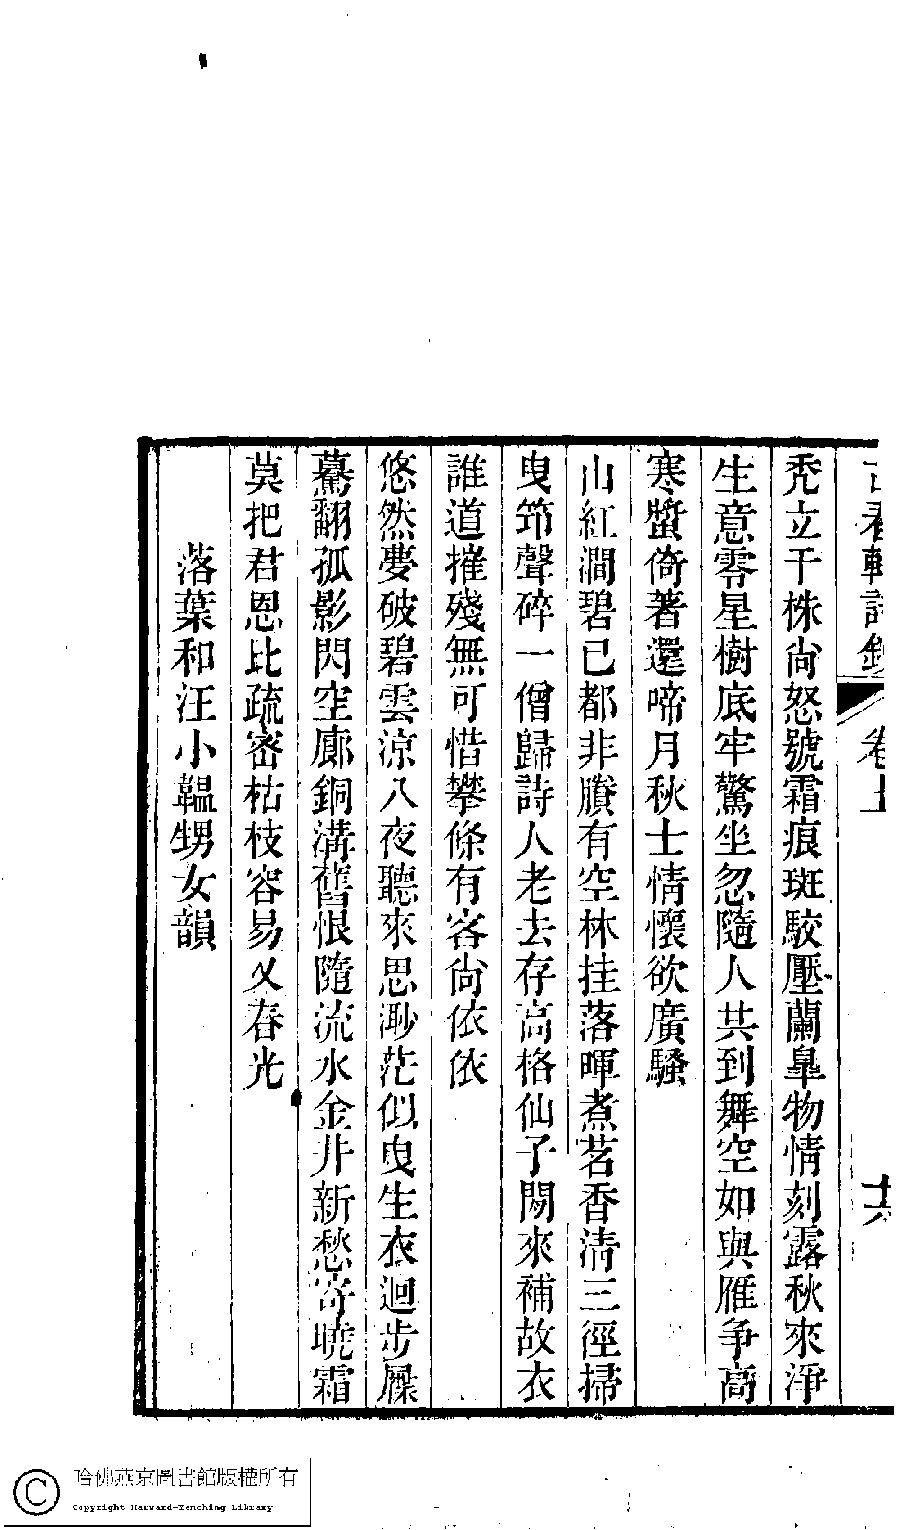 卷上
十六
禿立千株尚怒號霜痕斑駮壓蘭臯物情刻露秋來淨
生意零星樹底牢驚坐忽隨人共到舞空如與雁爭高
寒螿倚著還啼月秋士情懷欲廣騷
山紅澗碧已都非賸有空林挂落暉煮茗香清三徑掃
曳筇聲碎一僧歸詩人老去存高格仙子閒來補故衣
誰道摧殘無可惜攀條有客尙依依
悠然夢破碧雲涼八夜聽來思渺茫似曳生衣迴步屧
驀翻孤影閃空廊銅溝舊恨隨流水金井新愁寄曉霜
莫把君恩比疏密枯枝容易又春光
落葉和汪小韞甥女韻
哈佛燕京圖書館版權所有
Copyright Harvard-Yenching Library